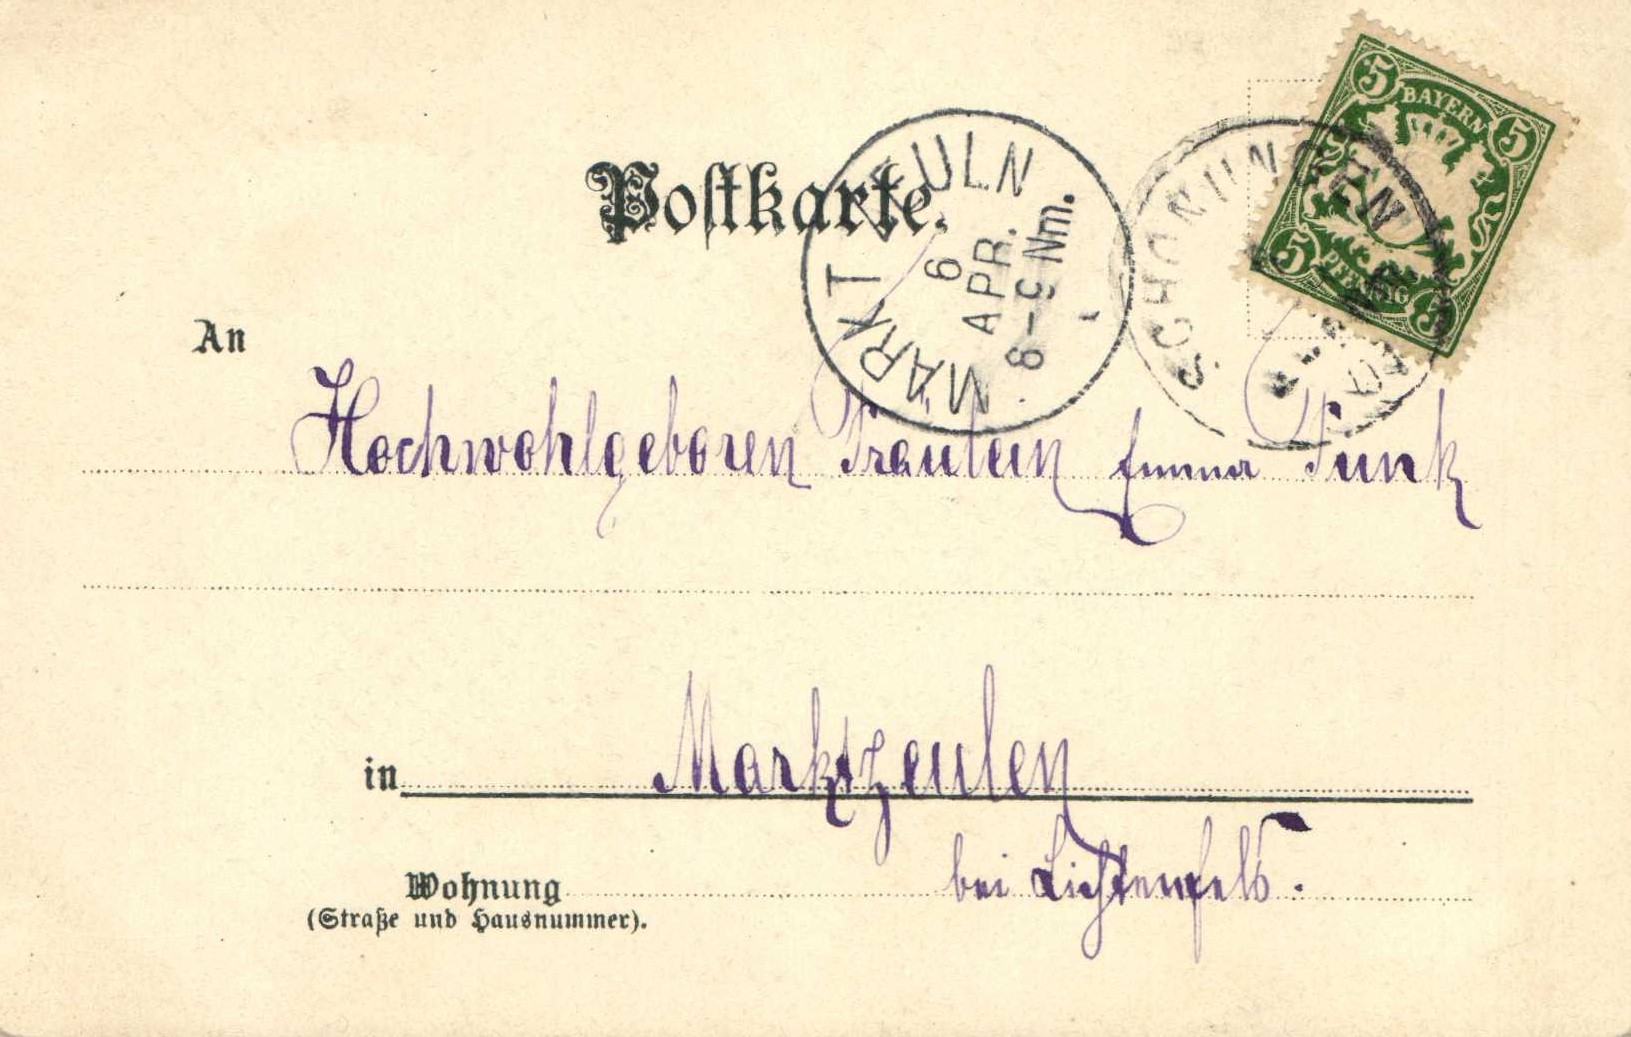 5 BAYERN 5
5 PFENNIG 5
SCHONUNGEN
MARKT ZEULN
6
APR.
8-9 Nm.
Postkarte.
An
Hochwohlgeboren Fräulein Emma Funk
in Marktzeulen
bei Lichtenfels.
Wohnung
(Straße und Hausnummer).